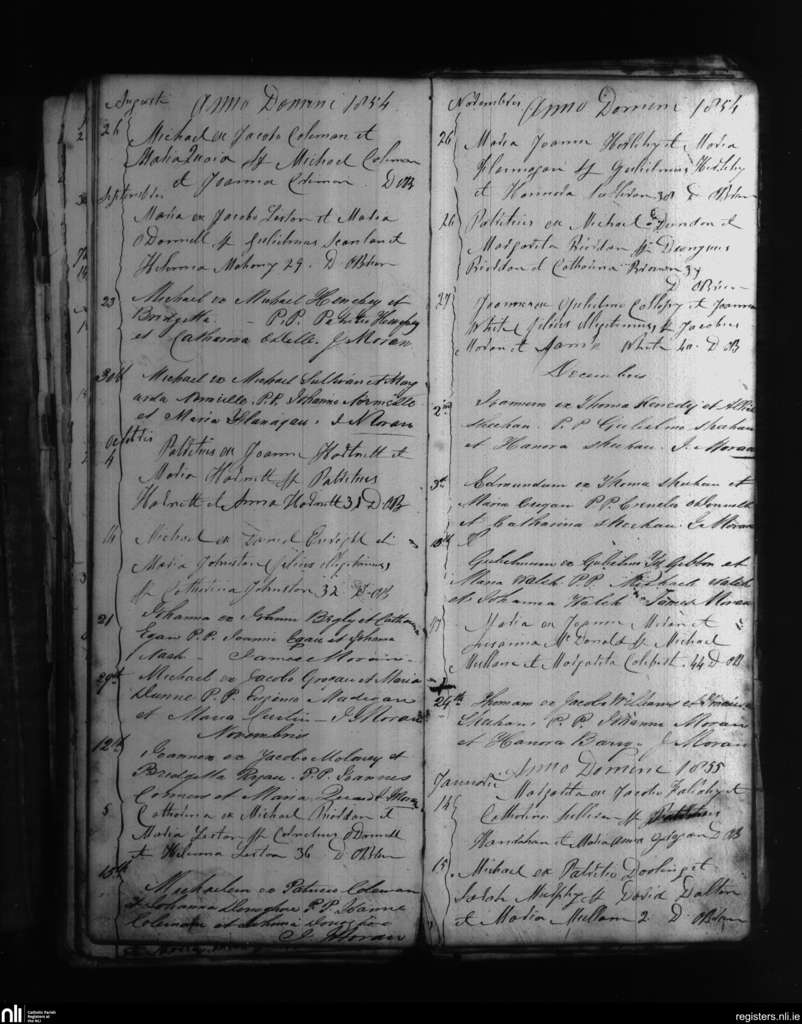 Augusti Anno Domini 1854
26 Michael ex Jacobo Coleman et
Maria Quain Sp Michael Coleman
et Joanna Coleman D OB
Septembris
Maria ex Jacobo Liston et Maria
O Donnell Sp Gulielmus Scanlan et
Helena Mahony 29. D OBrien
23 Michael ex Michael Henehy et
Bridgetta - P.P. Patritio Henehy
et Catharina J. Moran
30th Michael ex Michael Sullivan et Marg
P.P. Johanne
et Maria Flanagan. J Moran
Octobris
4 Patritius ex Joanne Hartnett et
Maria Hartnett Sp Patritius
Hartnett et Anna Hartnett 31 D OB
14 Michael ex Daniel Enright et
Maria Johnston filius illegitimus
Sp Catherina Johnston 32 D. OB
21 Johanna ex Johanne Begly et Catha
Egan P.P. Joanne Egan et Johana
Nash - James Moran -
29th Michael ex Jacobo et Maria
Dunne P.P. Eugenio Madigan
et Maria - J. Moran
Novembris
12th Joannem ex Jacobo Molony et
Bridgetta Ryan. P.P. Joannes
et Maria J Moran
5 Catherina ex Michael Riordan et
Maria Liston Sp Cornelius O Donnell
et Helena Liston 36 D OBrien
15th
Michaelem ex Patricio Coleman
et Johanna P.P. Joanne
Coleman et Johana
J. Moran
Novembris Anno Domini 1854
26 Maria Joanne et Maria
Flannagan Sp Gulielmus
et Hannora Sullivan 38 D OBrien
26 Patritius ex Michael Dundon et
Margarita Riordan Sp Dionysius
Riordan et Catherina 39
D OBrien
27 Joannem Gulielmo et Joanna
White filius illegitimus Sp Jacobus
Moran et Maria White 40. D OB
Decembris
2nd Joannem ex Thoma Kenedy et
Sheehan. P.P Gulielmo Sheehan
et Hanora Sheehan. J. Moran
3rd Edmundum ex Thoma Sheehan et
Maria P.P. Cornelio O Donnell
et Catharina Sheehan. J. Moran
10th
Gulielmum ex Gulielmo Fitz Gibbon et
Maria Walsh P.P. Michael Walsh
et Johanna Walsh James Moran
17 Maria ex Joanne Moran et
Susanna Mc Donald Sp Michael
Mullane et Margarita 44 D OB
24th Thomam ex Jacobo Williams et
Sheehan. P.P. Johanne Moran
et Hanora Barry J Moran
Anno Domini 1855
Januarii Margarita ex Jacobo et
14 Catherina Sullivan Sp Patritius
Hanrahan et Maria Anna D OB
15 Michael ex Patritio Dooling et
Sarah Murphy Sp David Dalton
et Maria Mullane 2 D OBrien
nli Catholic Parish
Registers at
the NLI
registers.nli.ie